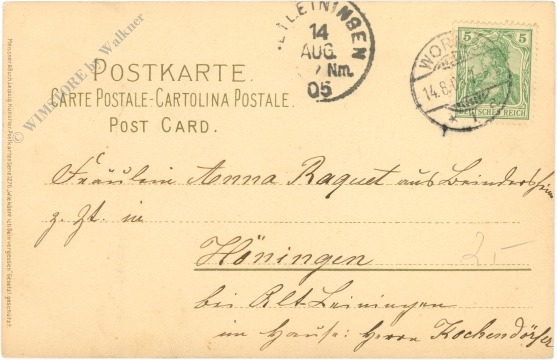 POSTKARTE.
CARTE POSTALE-CARTOLINA POSTALE.
POST CARD.
LEININGEN
14
AUG.
Nm.
05
WOR
14.8.0
5 5
DEUTSCHES REICH
© WIMCORE by Walkner
Fräulein Anna Raquet aus Beindersheim
z. Zt. in
Höningen
bei Alt-Leiningen
im Hause: Herrn Kochendörfer
2,-